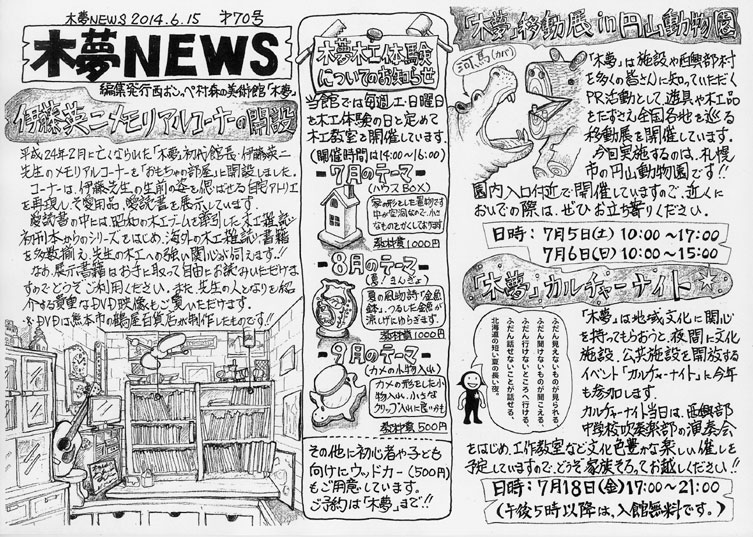 木夢NEWS 2014.6.15 第70号
木夢NEWS
編集発行西おこっぺ村森の美術館「木夢」
伊藤英二メモリアルコーナーの開設
平成24年2月に亡くなられた「木夢」初代館長・伊藤英二
先生のメモリアルコーナーを「おもちゃの部屋」に開設しました。
コーナーは、伊藤先生の生前の姿を偲ばせる自宅アトリエ
を再現し、ご愛用品、愛読書を展示しています。
愛読書の中には、昭和の木工ブームを牽引した木工雑誌の
初刊本からのシリーズをはじめ、海外の木工雑誌・書籍
を多数揃え、先生の木工への強い関心が伺えます!!
なお、展示書籍はお手に取って自由にお読みいただけま
すのでどうぞご利用ください。また、先生の人となりを紹
介する貴重なDVD映像もご覧いただけます。
※DVDは熊本市の鶴屋百貨店が制作したものです!!
木夢木工体験
についてのお知らせ
当館では毎週土・日曜日
を木工体験の日と定めて
木工教室を開催しています。
(開催時間は14:00〜16:00)
-7月のテーマ-
(ハウスBOX)
家の形をした置物です
中が空洞なので、小さ
なものをかくしておけます
教材費1000円
-8月のテーマ-
(夏!きんぎょ)
夏の風物詩「金魚
鉢」。つるした金魚が
涼しげにゆらぎます。
教材費1000円
-9月のテーマ-
(カメの小物入れ)
カメの形をした小
物入れ。小さな
クリップ入れに良いかも
教材費500円
その他に初心者や子ども
向けにウッドカー(500円)
もご用意しています。
ご予約は「木夢」まで!!
「木夢」移動展in円山動物園
河馬(カバ)
「木夢」は施設や西興部村
を多くの皆さんに知っていただく
PR活動として、遊具や木工品
をたずさえ全国各地を巡る
移動展を開催しています。
今回実施するのは、札幌
市の円山動物園です!!
園内入口付近で開催していますので、近くに
おいでの際は、ぜひお立ち寄りください。
日時:7月5日(土)10:00〜17:00
7月6日(日)10:00〜15:00
「木夢」カルチャーナイト☆
ふだん見えないものが見られる、
ふだん聞けないものが聞こえる、
ふだん行けないところへ行ける、
ふだん話せないことが話せる、
北海道の短い夏の長い夜。
「木夢」は地域文化に関心
を持ってもらおうと、夜間に文化
施設、公共施設を開放する
イベント「カルチャーナイト」に今年
も参加します。
カルチャーナイト当日は、西興部
中学校吹奏楽部の演奏会
をはじめ、工作教室など文化色豊かな楽しい催しを
予定していますので、どうぞ家族そろってお越しください!!
日時:7月18日(金)17:00〜21:00
(午後5時以降は、入館無料です。)